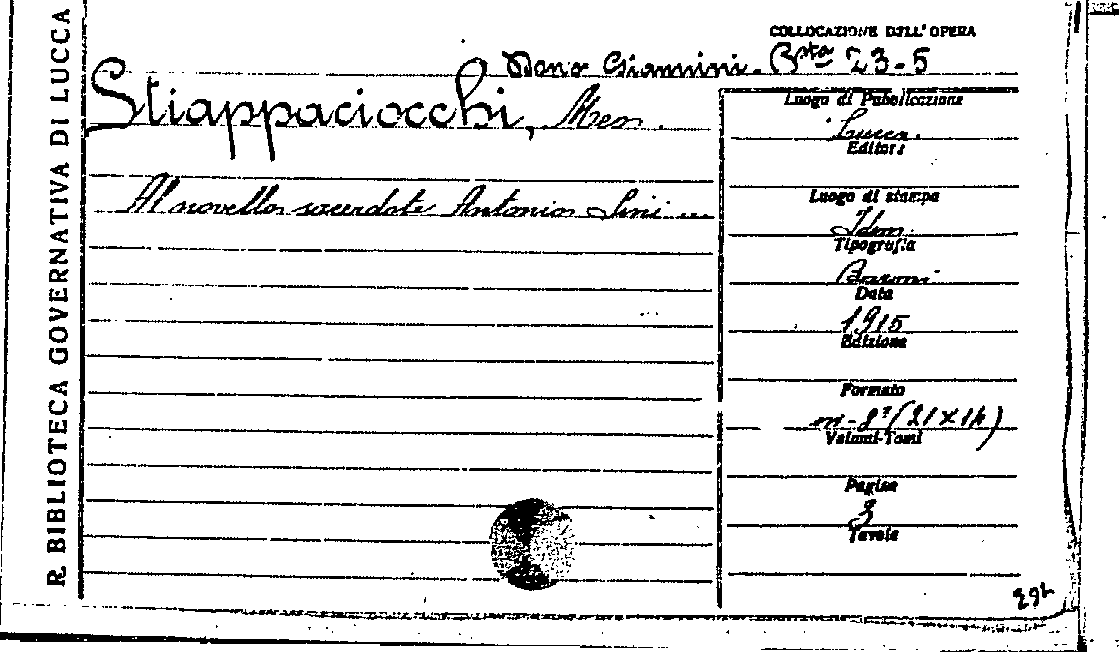 R. BIBLIOTECA GOVERNATIVA DI LUCCA
COLLOCAZIONE DELL' OPERA
Dono Giannini. Bsta 23-5
Stiappaciocchi,
Al novello sacerdote Antonio Lini ...
Luogo di Pubblicazione
Lucca.
Editore
Luogo di stampa
Idem.
Tipografia
Baroni
Data
1915
Edizione
Formato
in-8° (21 X 14)
Volumi-Tomi
Pagine
3
Tavole